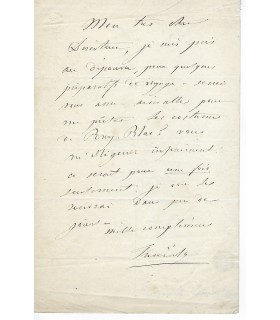 Mon très cher
Directeur, je suis pris
au dépourvu, pour quelques
préparatifs de voyage – seriez
vous assez aimable pour
me prêter les costumes
de Ruy-Blas? vous
m'obligerez infiniment.
ce serait pour une fois
seulement. je vous les
renverrai dans peu de
jours –
mille compliments